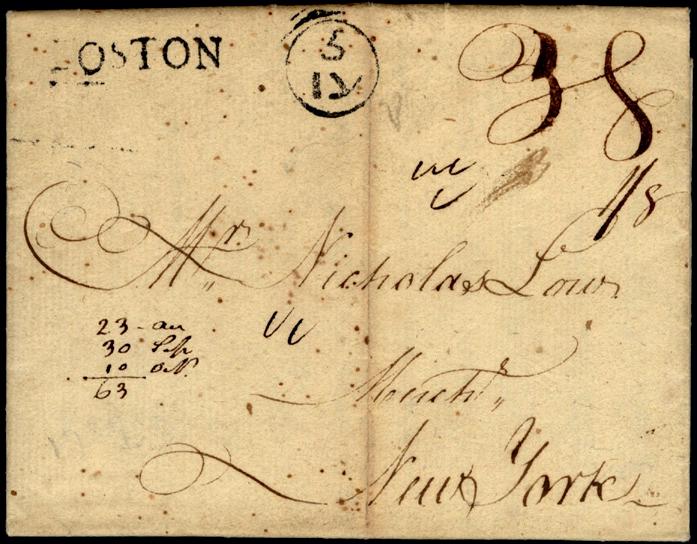 OSTON
5
IY
38
1/8
Mr. Nicholas Low
23 - au
30 Sep
10 Oct
63
Mercht.
New York